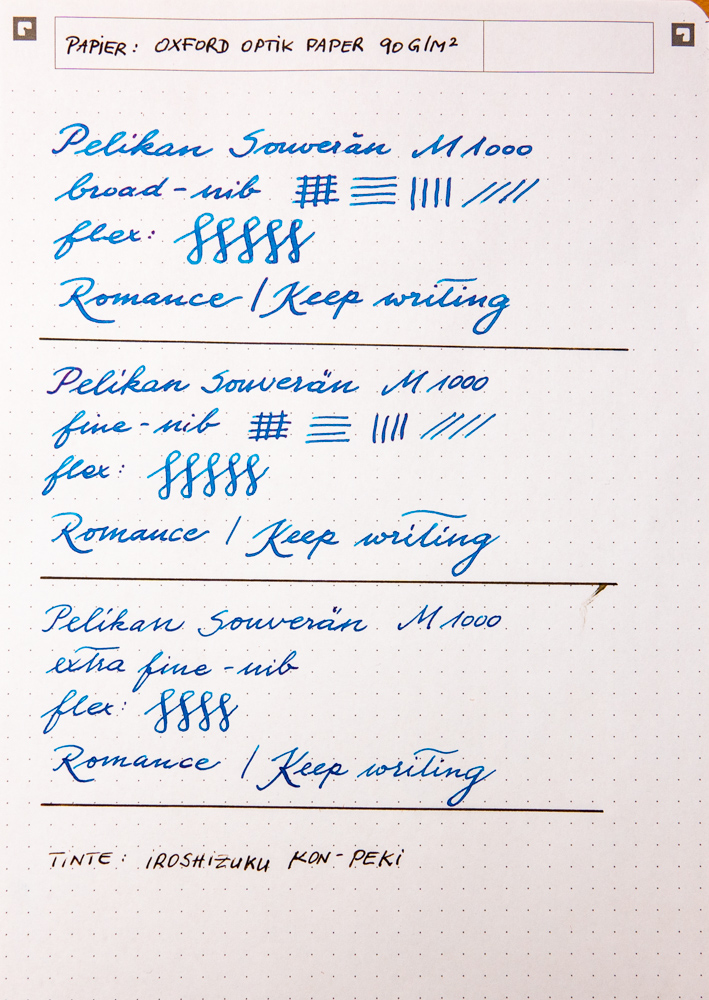 PAPIER: OXFORD OPTIK PAPER 90G/M²
Pelikan Souverän M1000
broad-nib
flex:
Romance / Keep writing
Pelikan Souverän M1000
fine-nib
flex:
Romance / Keep writing
Pelikan Souverän M1000
extra fine-nib
flex:
Romance / Keep writing
TINTE: IROSHIZUKU KON-PEKI